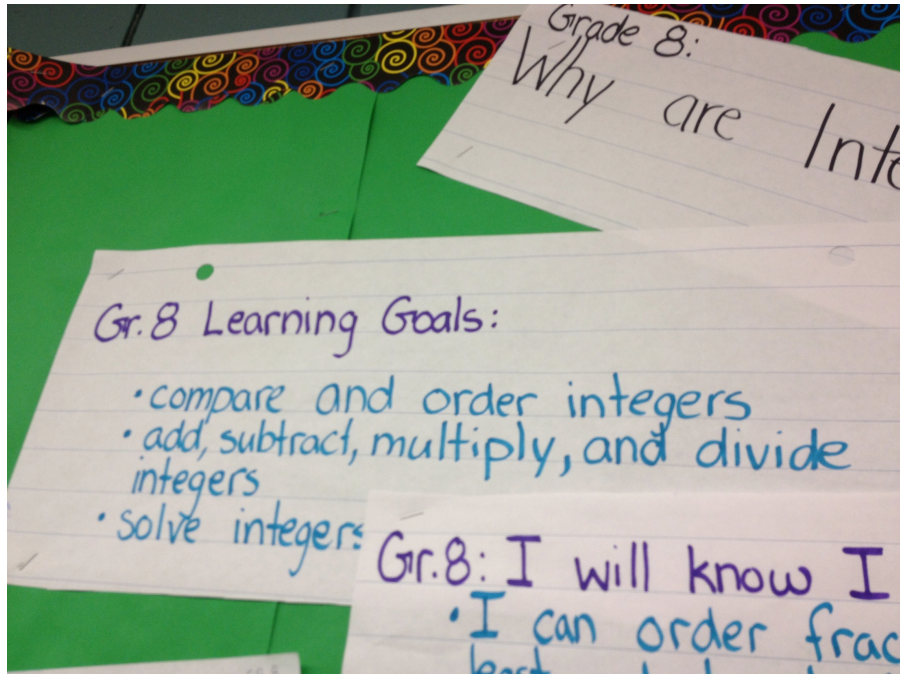 Grade 8:
Why are
Gr. 8 Learning Goals:
• compare and order integers
• add, subtract, multiply, and divide
integers
• solve integers
Gr. 8: I will know I
• I can order